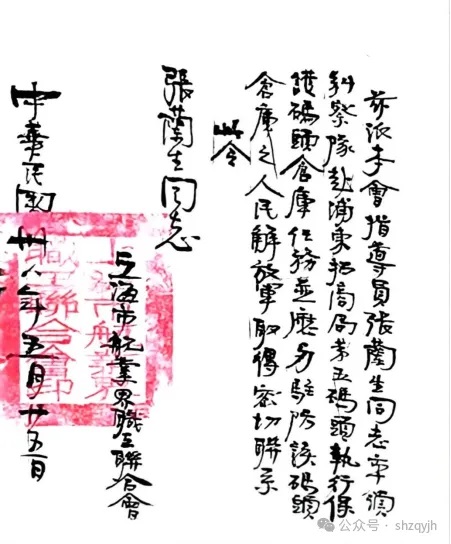 兹派本會指導員張蘭生同志率領
糾察隊赴浦東招商局第五碼頭執行保
護碼頭倉庫任務並應与駐防該碼頭
倉庫之人民解放軍取得密切聯系
此令
張蘭生同志
上海市航業界職工聯合會
中華民國卅八年五月廿五日
公众号·shzqyjh